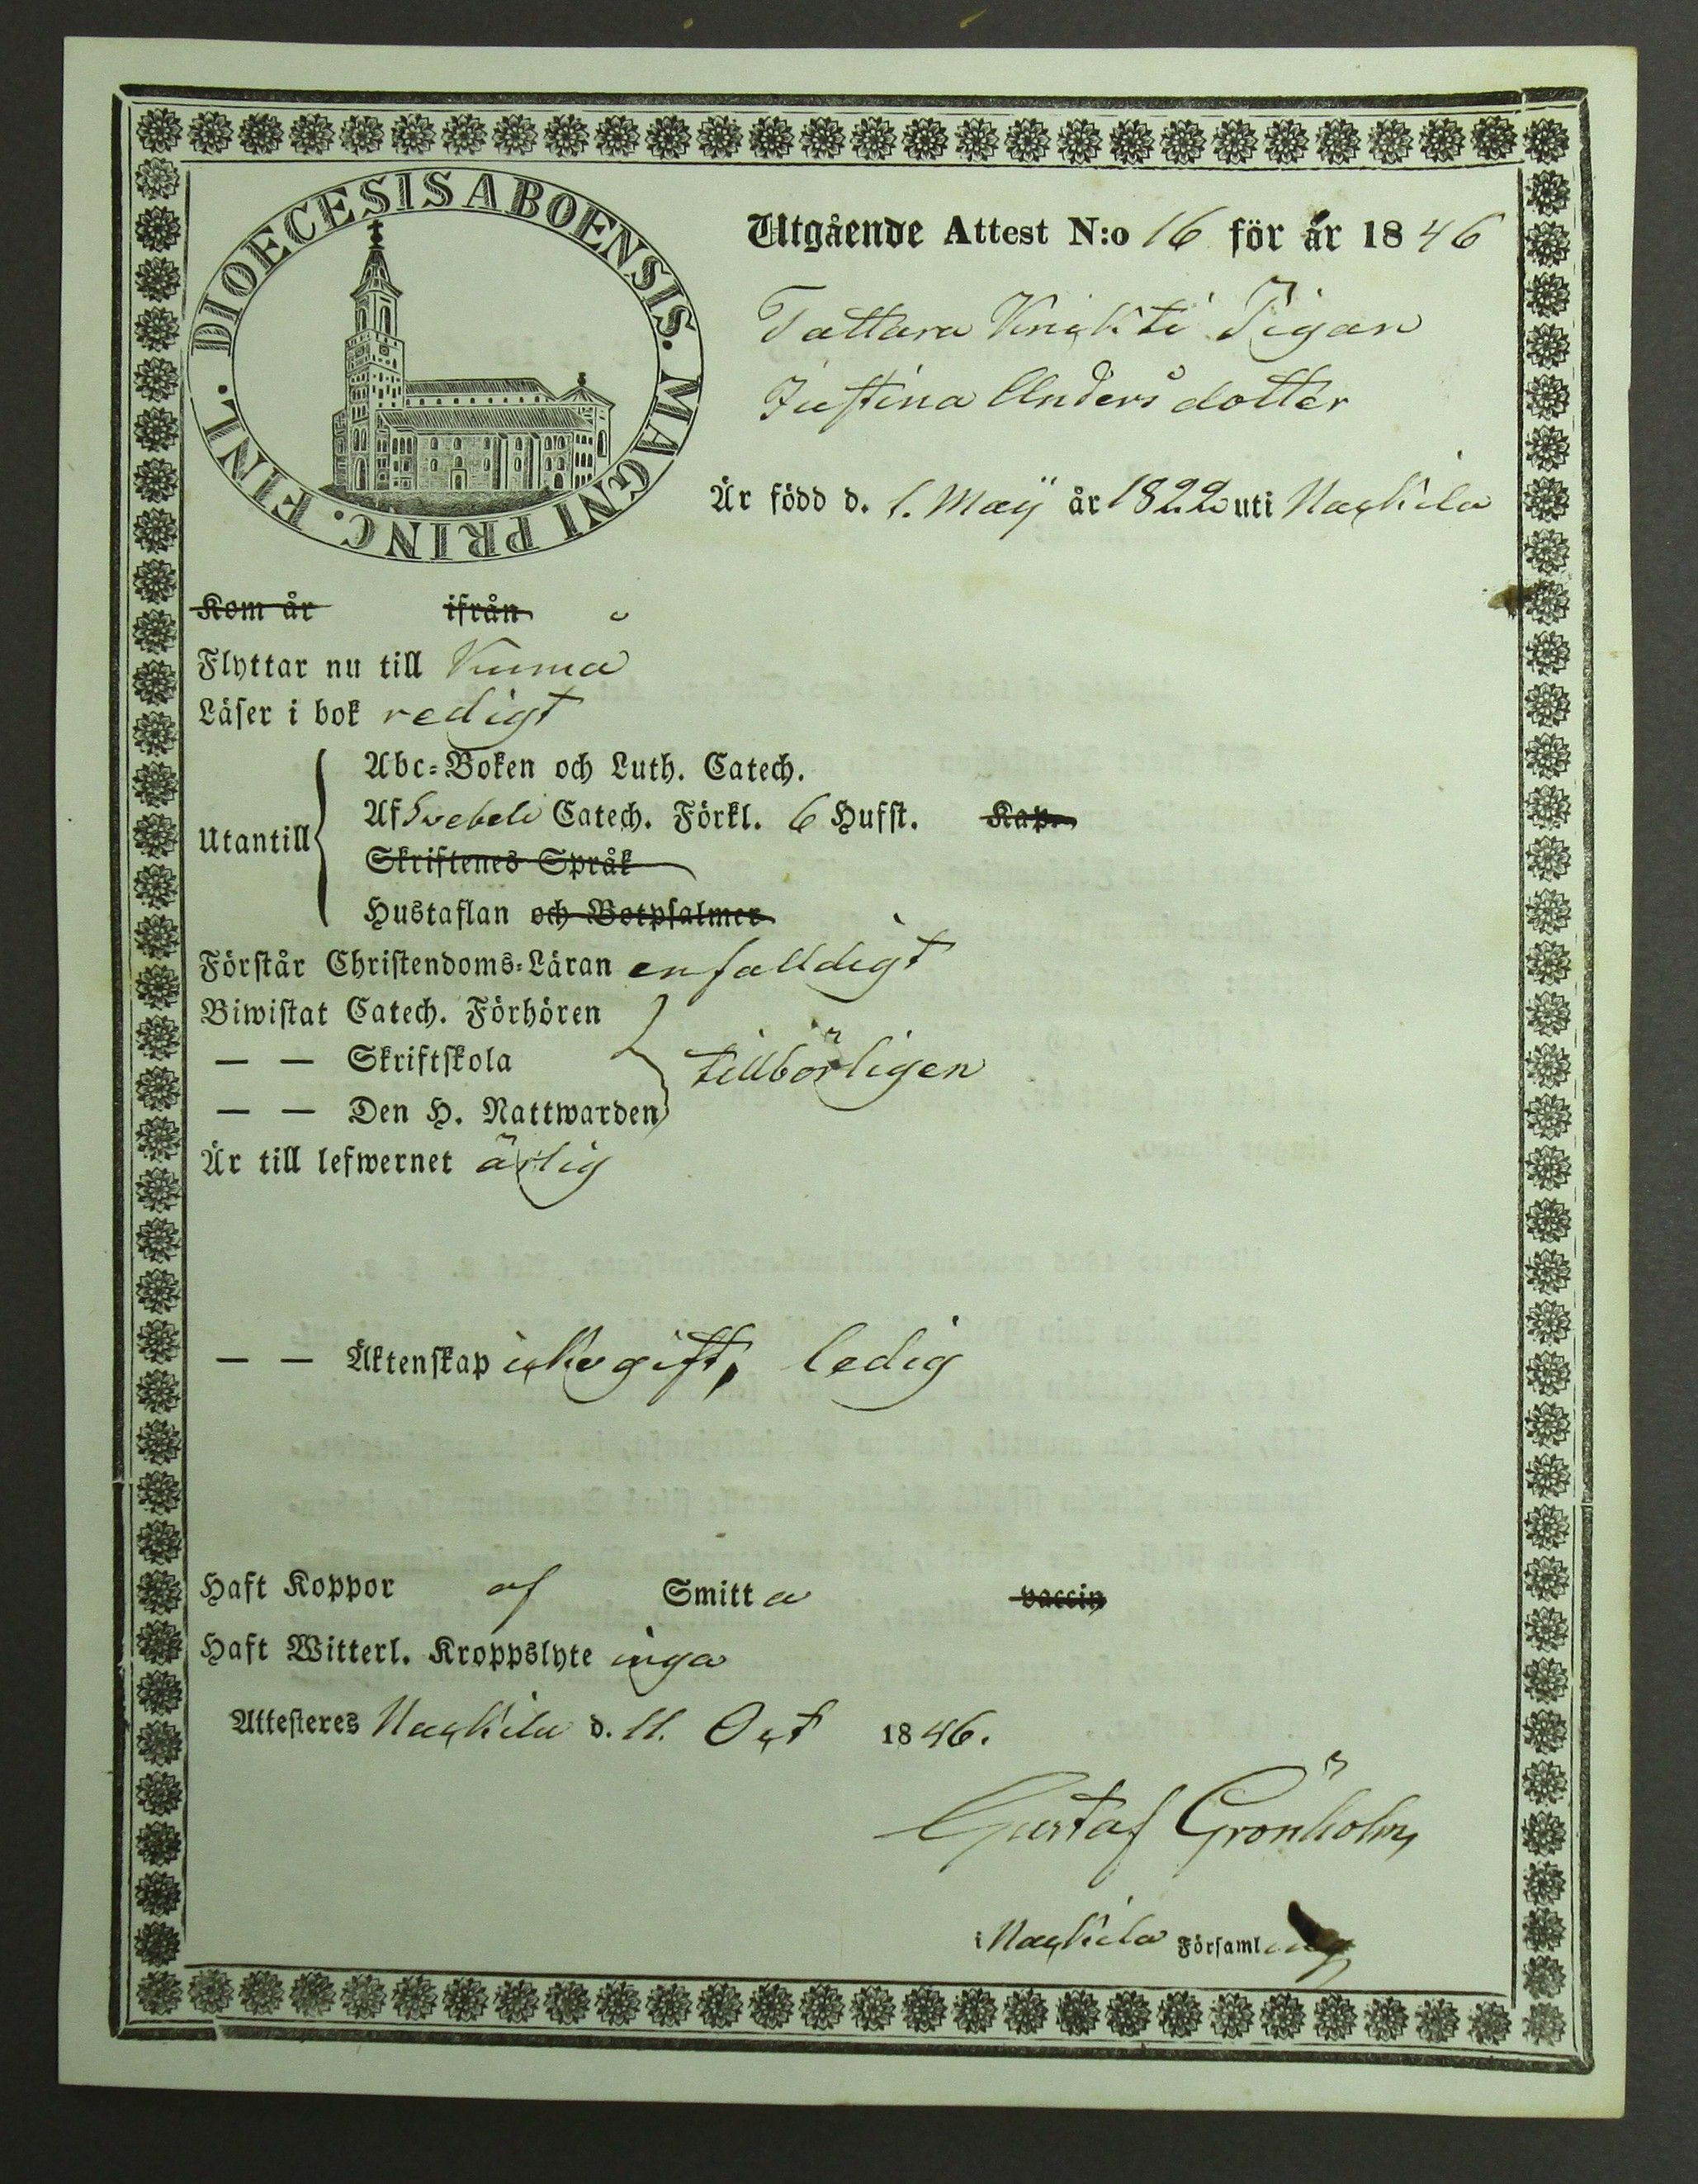 DIOECESIS ABOENSIS. MAGNI PRINC. FINL.
Utgående Attest N:o 16 för år 1846
Tattara Knickti Pigan
Justina Anders dotter
Är född d. 1. Maÿ år 1822 uti Nackila
Kom år ifrån
Flyttar nu till Kumo
Läser i bok redigt
Utantill
Abc-Boken och Luth. Catech.
Af Svebeli Catech. Förkl. 6 Hufst. Kap.
Skriftenes Språk
Hustaflan och Botpsalmer
Förstår Christendoms-Läran enfalldigt
Biwistat Catech. Förhören
— — Skriftskola
tillbörligen
— — Den H. Nattwarden
Är till lefwernet ärlig
— — Äktenskap icke gift, ledig
Haft Koppor af Smitta vaccin
Haft Witterl. Kroppslyte inga
Attesteres Nackila d. 11. Oct 1846.
Gustaf Grönholm
i Nackila Församling